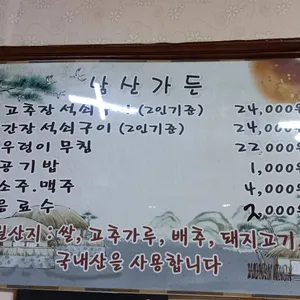 남산가든
고추장석쇠 이 (2인기준) 24,000원
간장석쇠구이 (2인기준) 24,000
우렁이무침 22,000
공기밥 1,000원
소주.맥주 4,000
음료수 2,000
원산지:쌀, 고추가루, 배추, 돼지고기
국내산을 사용합니다